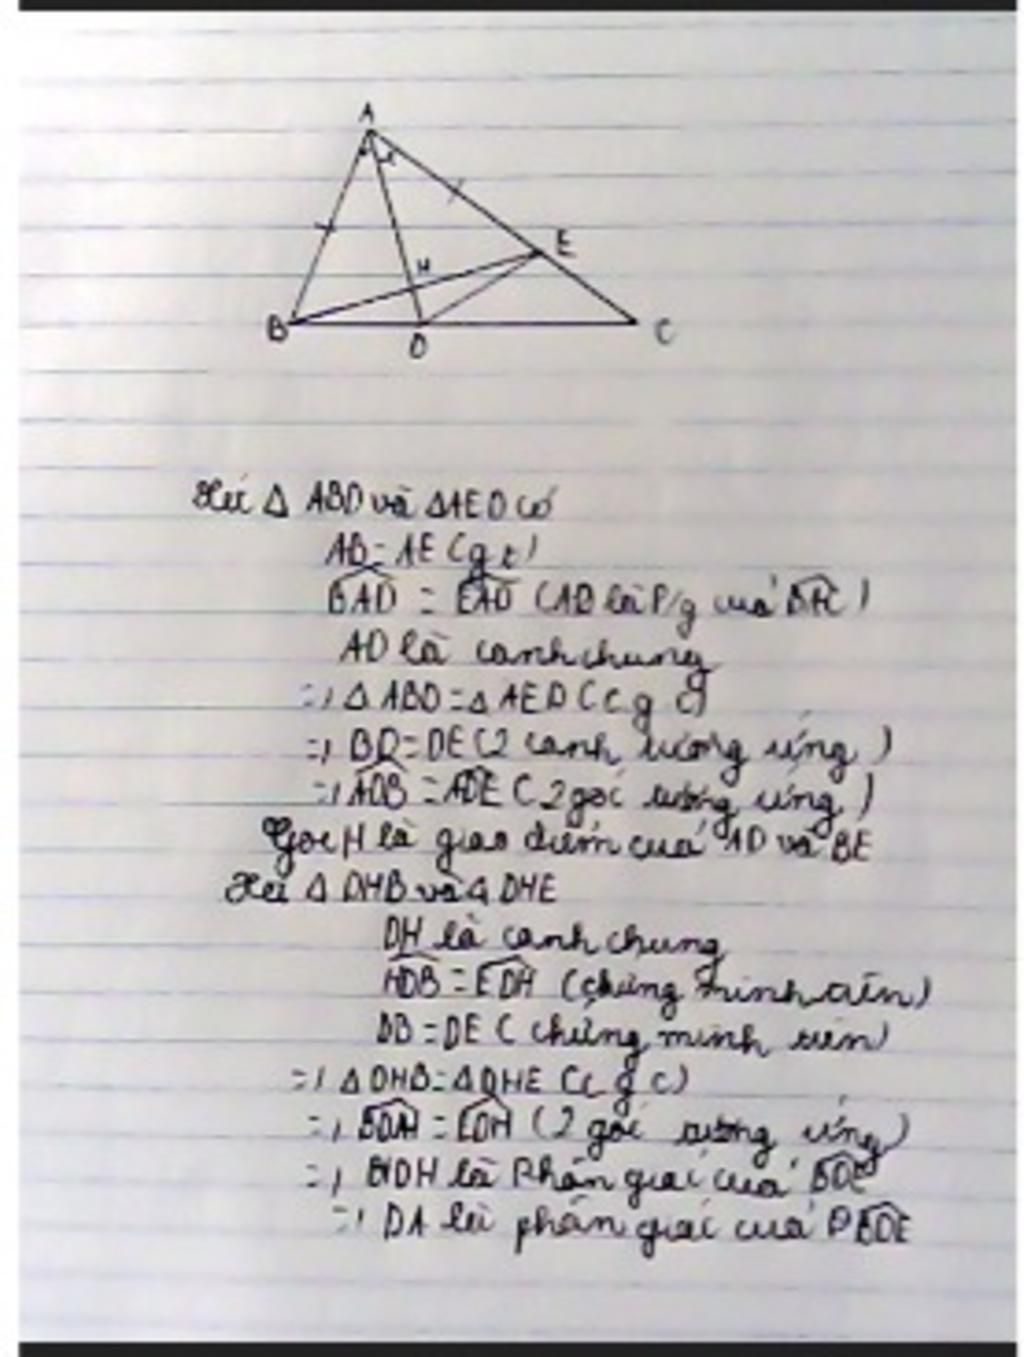 A
E
H
B
D
C
Xét Δ ABD và ΔAED có
AB = AE (gt)
BAD = EAD (AD là P/g của BAC)
AD là cạnh chung
=> Δ ABD = Δ AED (c g c)
=> BD = DE (2 cạnh tương ứng)
=> ADB = ADE (2 góc tương ứng)
Gọi H là giao điểm của AD và BE
Xét Δ DHB và Δ DHE
DH là cạnh chung
HDB = EDH (chứng minh trên)
DB = DE (chứng minh trên)
=> Δ DHB = Δ DHE (c g c)
=> BDH = EDH (2 góc tương ứng)
=> DH là Phân giác của BDE
=> DA là phân giác của BDE